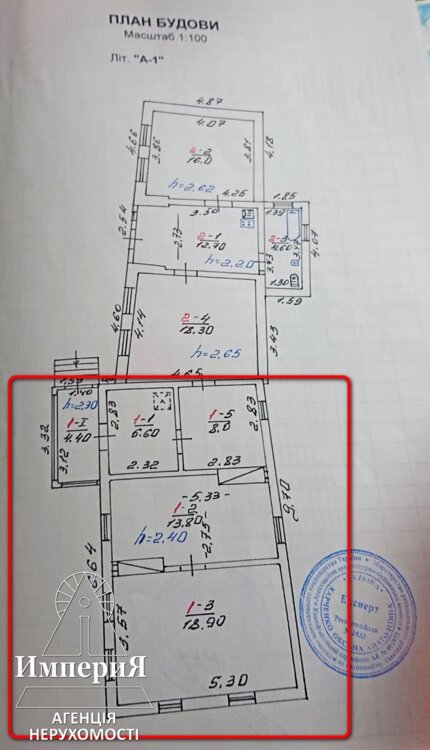 ПЛАН БУДОВИ
Масштаб 1:100
Літ. "А-1"
4.87
4.07
4.66
3.86
4-2
16.0
3.81
4.18
h=2.62
4.25
1.85
2.54
3.50
1.32
2.73
2-1
12.70
2-3
4.60
3.47
4.07
3.43
h=2.20
1.30
1.59
4.60
4.14
2-4
18.30
3.43
h=2.65
4.65
1.40
h=2.30
2.83
1-1
6.60
1-5
8.0
2.83
3.32
1-I
4.40
3.12
2.32
2.83
5.33
1-2
13.80
9.70
h=2.40
2.75
3.57
1-3
18.90
5.30
УКРАЇНА
Експерт
ИмпериЯ
АГЕНЦІЯ
НЕРУХОМОСТІ